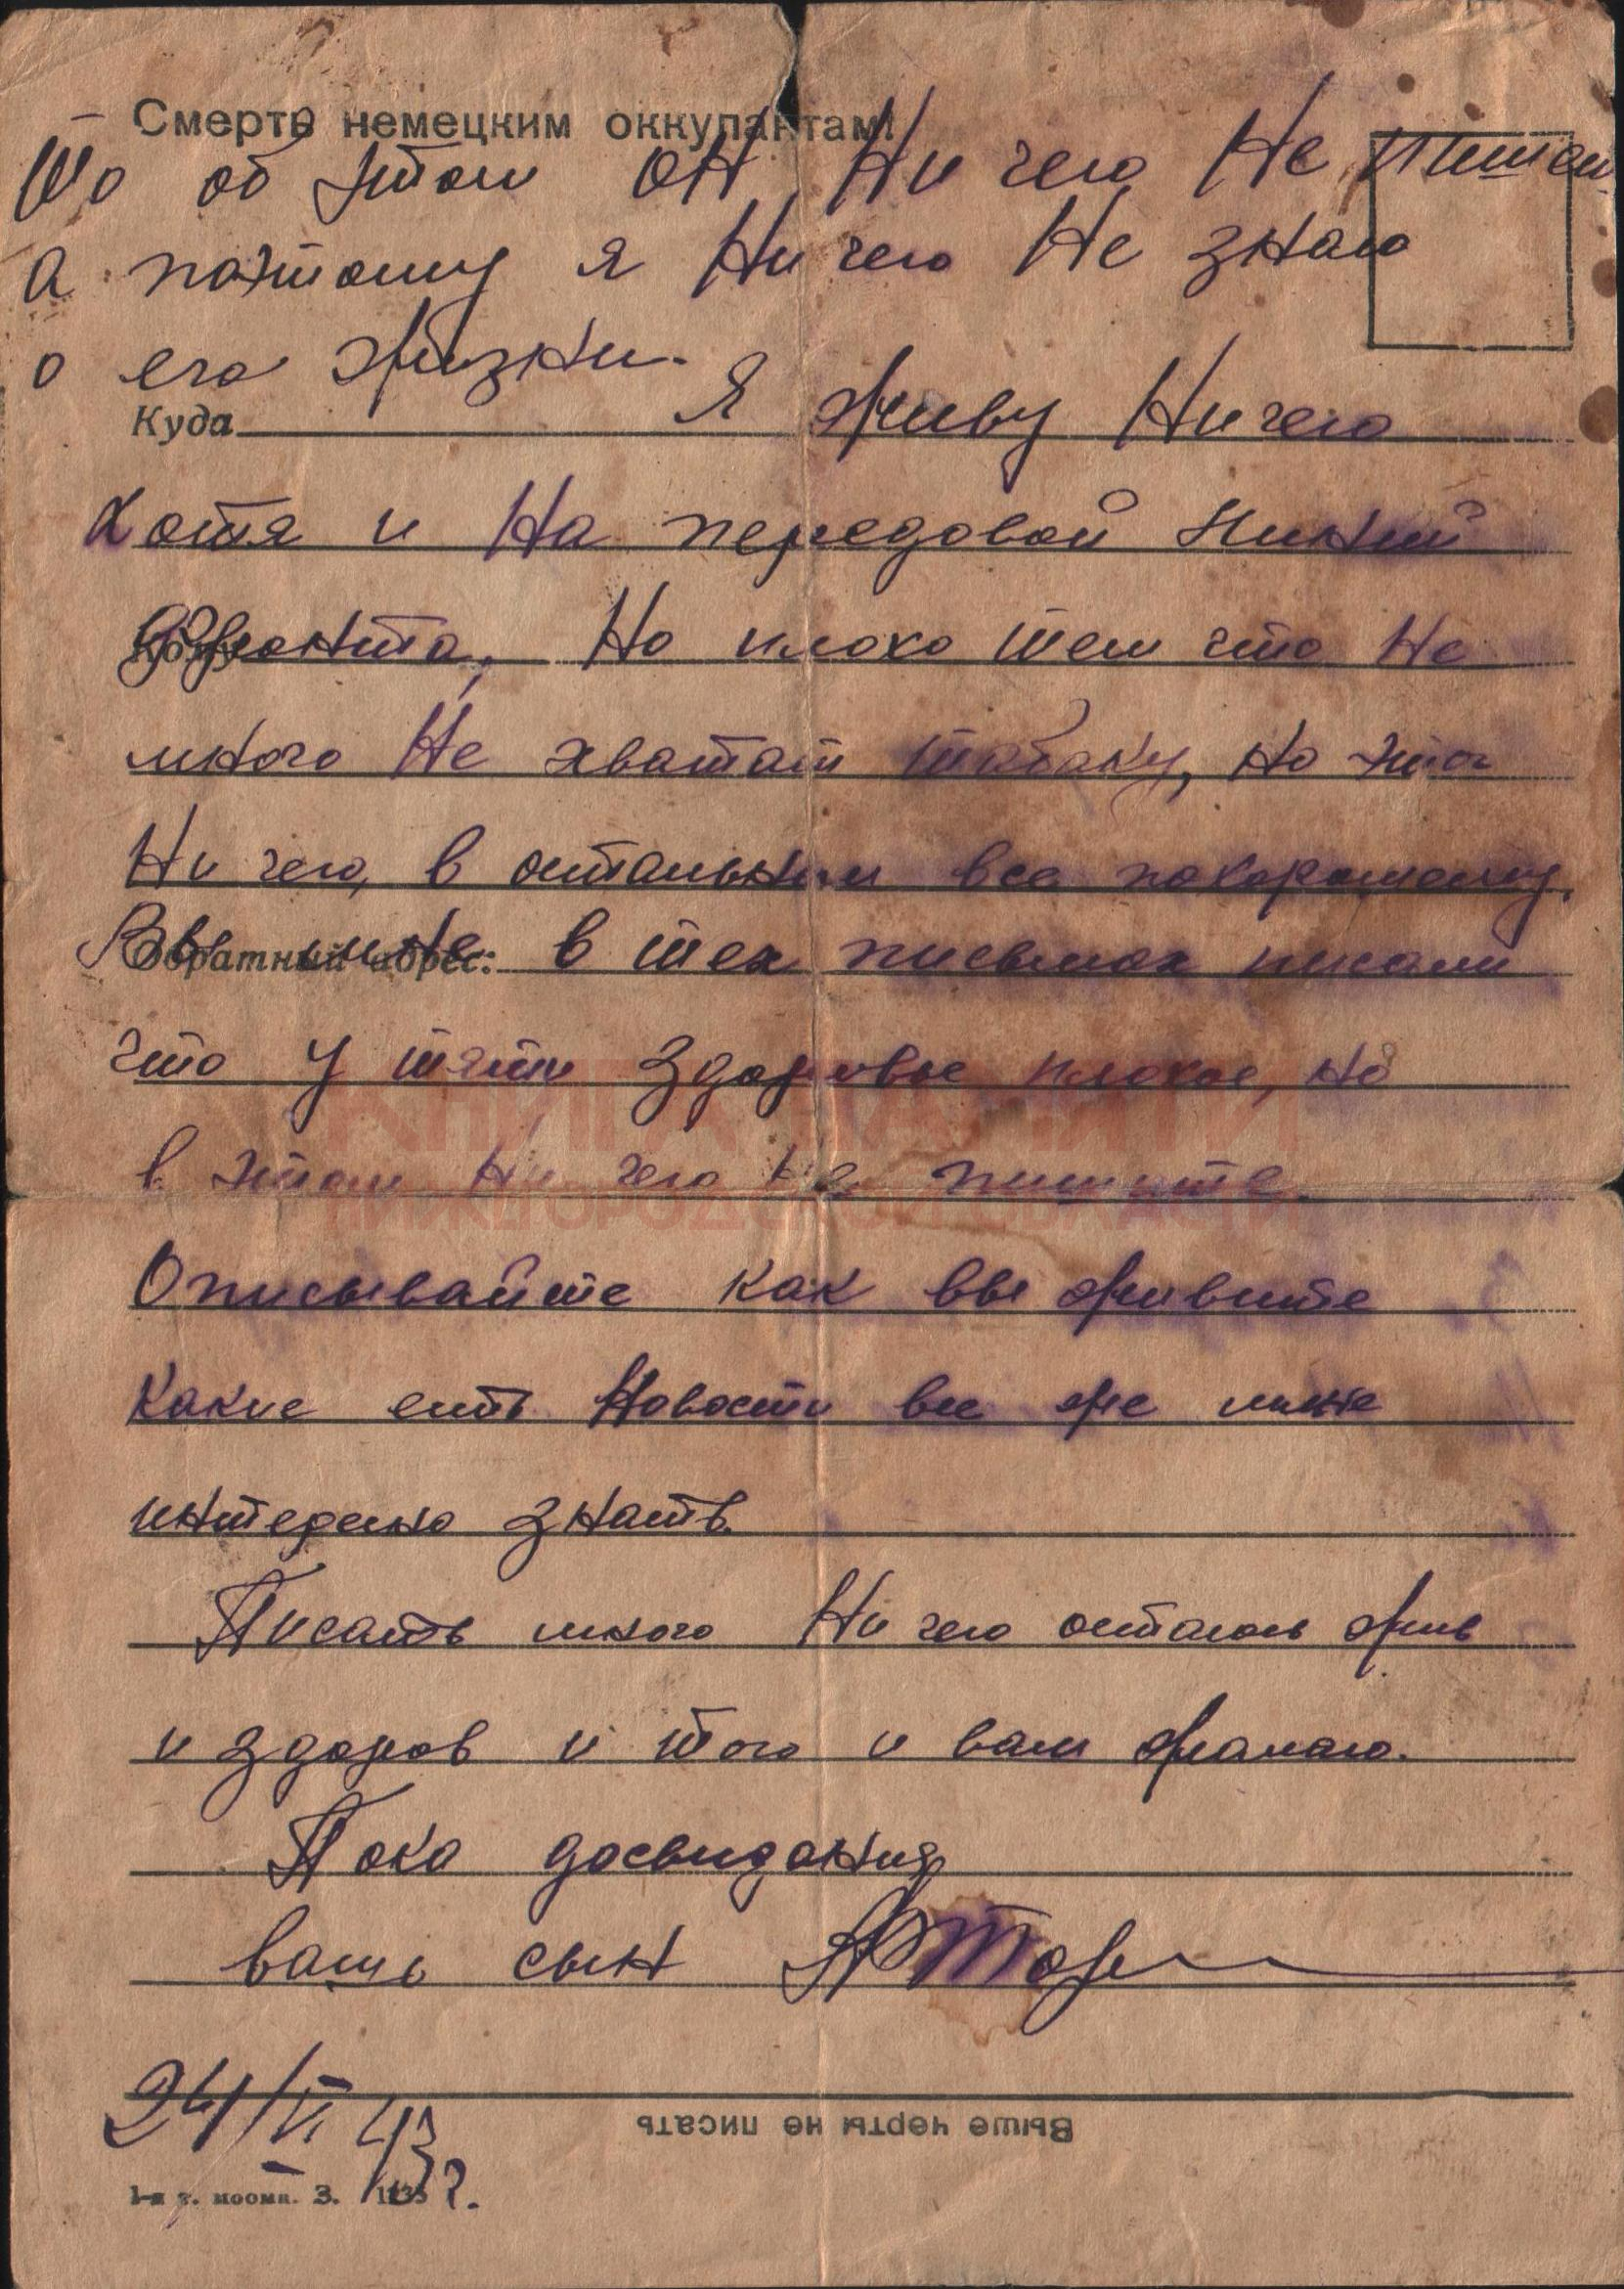 Смерть немецким оккупантам!
То об этом он Ни чего Не пишет
а поэтому я Ни чего Не знаю
о его жизни.
Куда
Я живу Ничего
хотя и На передовой Линии
фронта, Но плохо тем что Не
много Не хватает табаку, но это
Ни чего, в остальном все похорошему.
Обратный адрес:
Вы мне в тех письмах писали
что у тяти здоровье плохое, но
в этом Ни чего Не пишите.
КНИГА ПАМЯТИ
НИЖЕГОРОДСКОЙ ОБЛАСТИ
Описывайте как вы живете
какие есть Новости все же мне
интересно знать.
Писать много Ни чего остаюсь жив
и здоров и того и вам желаю.
Пока досвидания
вашь сын
24/VI 43 г.
Выше черты не писать